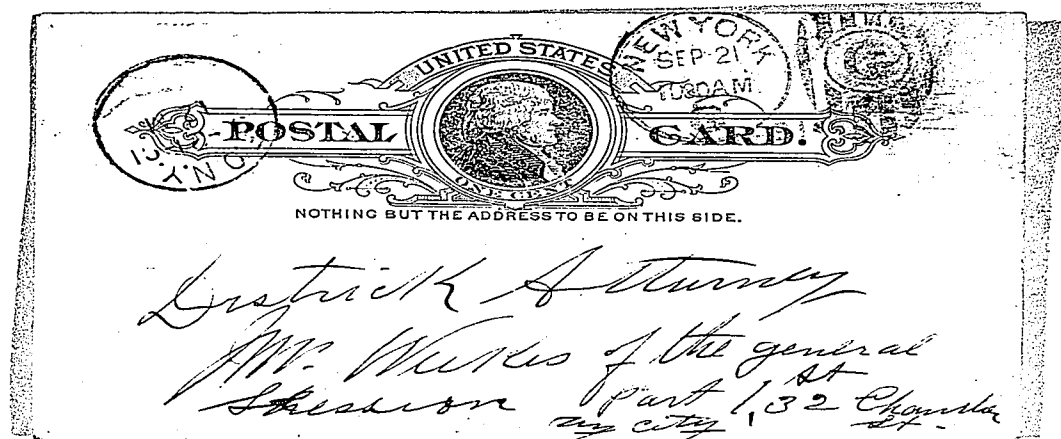 UNITED STATES
NEW YORK
SEP 21
1030AM
POSTAL CARD.
N.Y.
ONE CENT
NOTHING BUT THE ADDRESS TO BE ON THIS SIDE.
Districk Atturney
Mr. Weekes of the general
Part 1, 32
St
ny city
St.